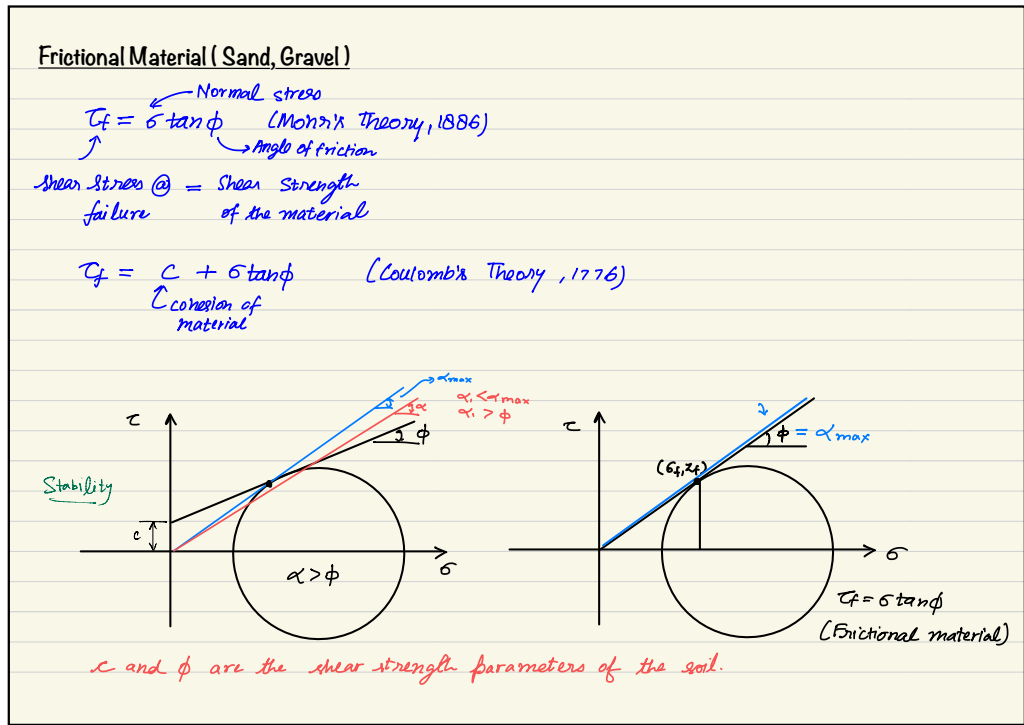 Frictional Material ( Sand, Gravel )
Normal stress
τf = σ tanϕ (Mohr's Theory, 1886)
Angle of friction
shear stress @ = shear strength
failure of the material
τf = C + σ tanϕ (Coulomb's Theory, 1776)
cohesion of
material
αmax
α₁ < αmax
α₁ > ϕ
α
ϕ
τ
Stability
c
σ
α > ϕ
τ
ϕ = αmax
(σf, τf)
σ
τf = σ tanϕ
(Frictional material)
c and ϕ are the shear strength parameters of the soil.